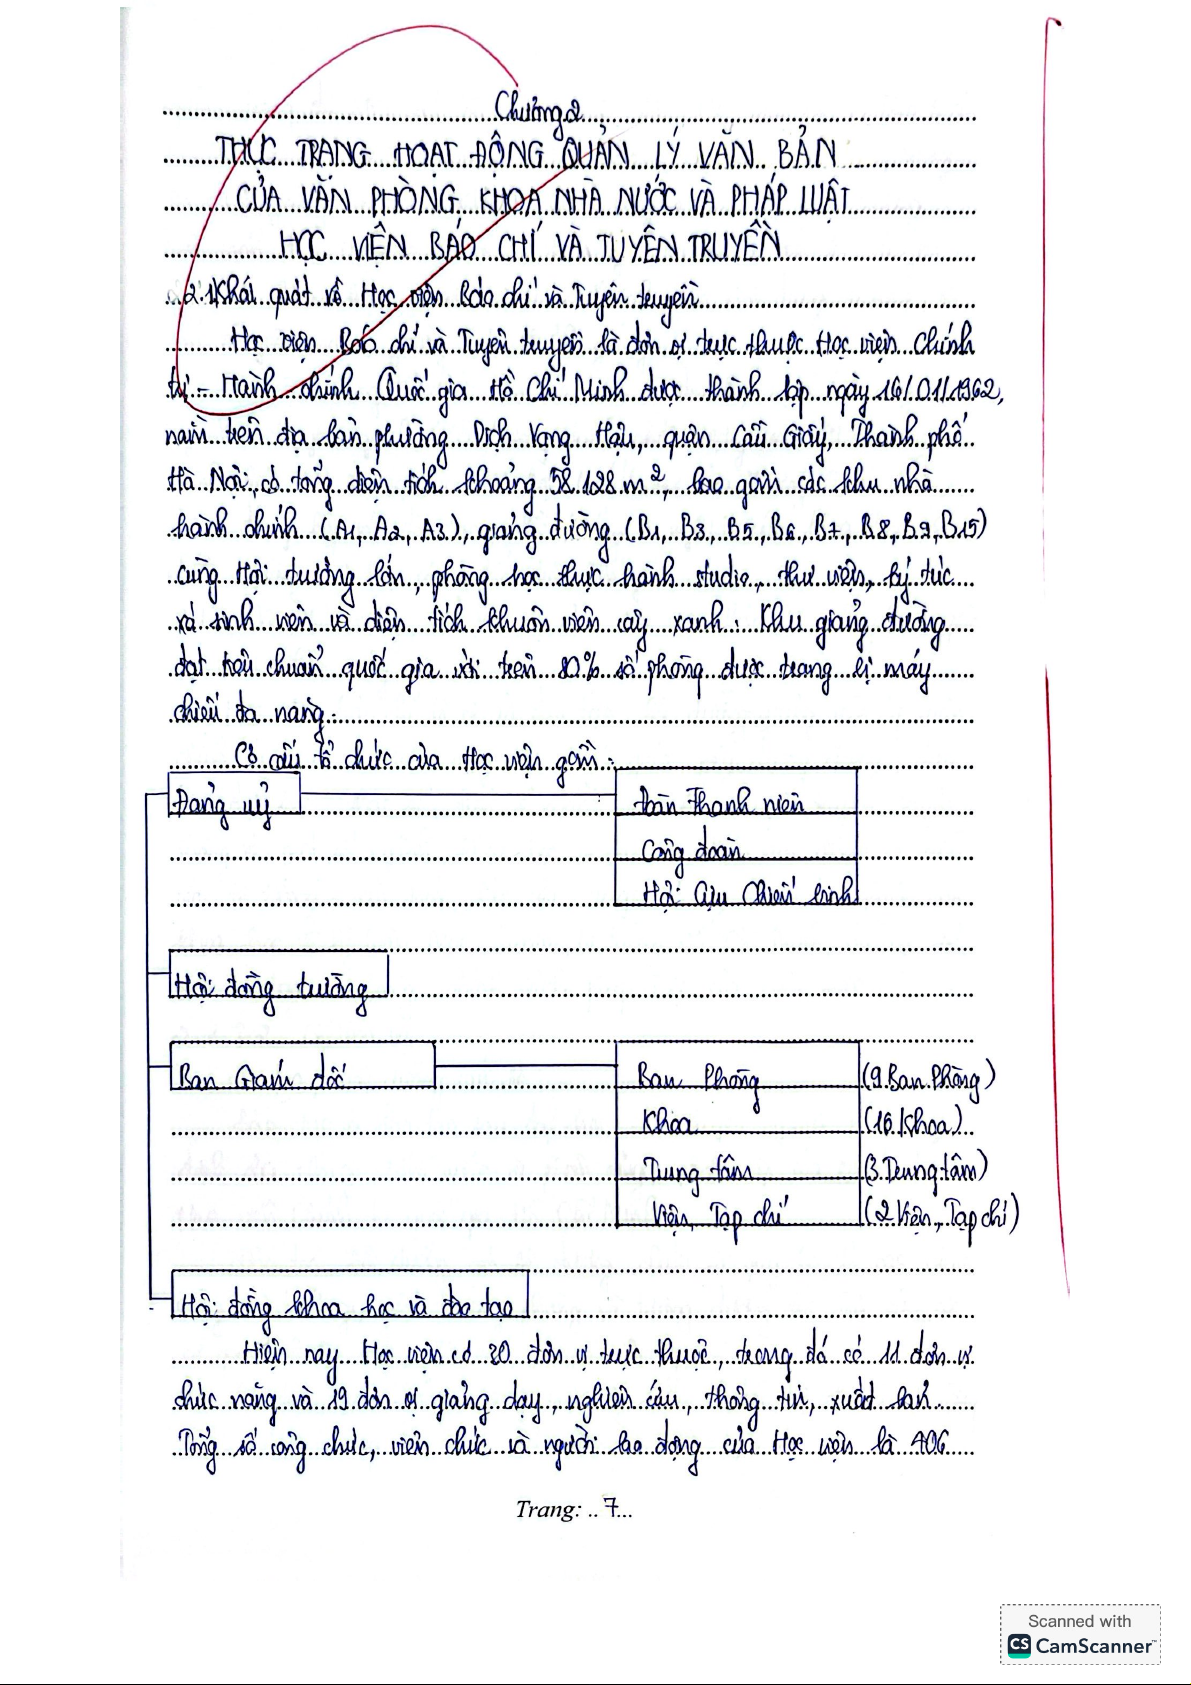 Chương 2
THỰC TRẠNG HOẠT ĐỘNG QUẢN LÝ VĂN BẢN
CỦA VĂN PHÒNG KHOA NHÀ NƯỚC VÀ PHÁP LUẬT
HỌC VIỆN BÁO CHÍ VÀ TUYÊN TRUYỀN
2.1 Khái quát về Học viện Báo chí và Tuyên truyền
Học viện Báo chí và Tuyên truyền là đơn vị trực thuộc Học viện Chính
trị - Hành chính Quốc gia Hồ Chí Minh được thành lập ngày 16/01/1962,
nằm trên địa bàn phường Dịch Vọng Hậu, quận Cầu Giấy, Thành phố
Hà Nội, có tổng diện tích khoảng 58.128 m², bao gồm các khu nhà
hành chính (A1, A2, A3), giảng đường (B1, B3, B5, B6, B7, B8, B9, B15)
cùng Hội trường lớn, phòng học thực hành studio, thư viện, ký túc
xá sinh viên và diện tích khuôn viên cây xanh. Khu giảng đường
đạt tiêu chuẩn quốc gia với trên 80% số phòng được trang bị máy
chiếu đa năng.
Cơ cấu tổ chức của Học viện gồm:
Đảng uỷ
Đoàn Thanh niên
Công đoàn
Hội Cựu Chiến binh
Hội đồng trường
Ban Giám đốc
Ban Phòng (9 Ban Phòng)
Khoa (16 Khoa)
Trung tâm (3 Trung tâm)
Viện, Tạp chí (2 Viện, Tạp chí)
Hội đồng khoa học và đào tạo
Hiện nay Học viện có 30 đơn vị trực thuộc, trong đó có 11 đơn vị
chức năng và 19 đơn vị giảng dạy, nghiên cứu, thông tin, xuất bản.
Tổng số công chức, viên chức và người lao động của Học viện là 406
Trang: ..7...
Scanned with
CS CamScanner